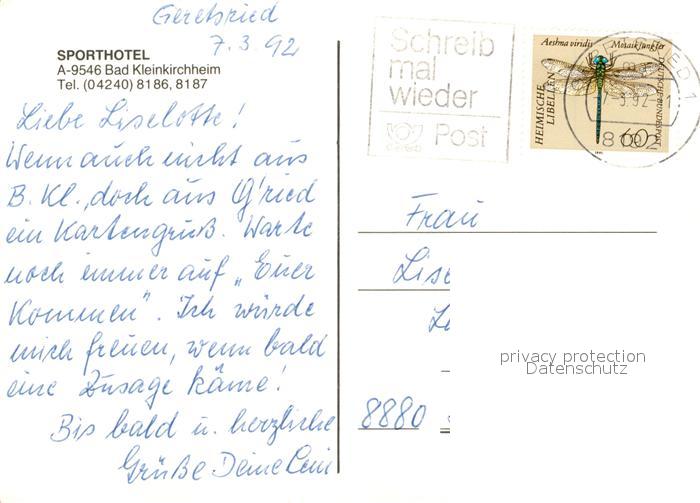 Geretsried
7.3.92
SPORTHOTEL
A-9546 Bad Kleinkirchheim
Tel. (04240) 8186, 8187
Liebe Liselotte!
Wenn auch nicht aus
B. Kl., doch aus G'ried
ein Kartengruß. Warte
noch immer auf „Euer
Kommen". Ich würde
mich freuen, wenn bald
eine Zusage käme!
Bis bald u. herzliche
Grüße Deine
Schreib
mal
wieder
Post
Aeshna viridis Mosaikjungfer
HEIMISCHE
LIBELLEN
DEUTSCHE BUNDESPOST
60
Frau
Lise
8880
privacy protection
Datenschutz